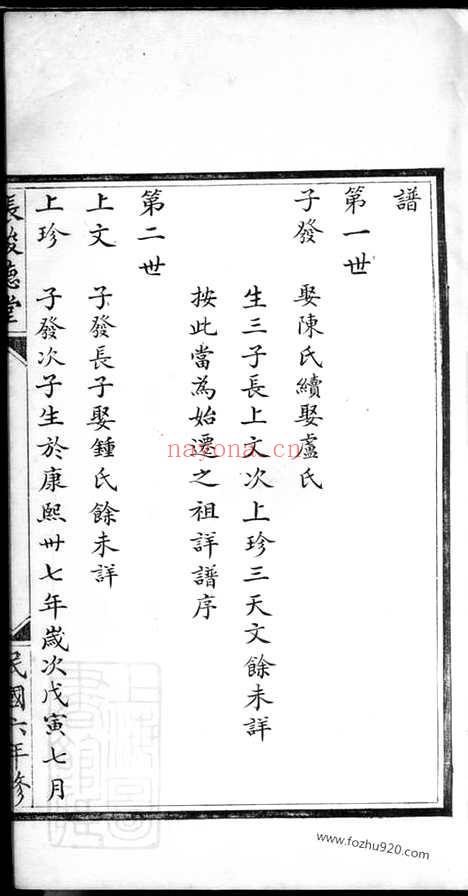 譜
第一世
子發　娶陳氏續娶盧氏
生三子長上文次上珍三天文餘未詳
按此當為始遷之祖詳譜序
第二世
上文　子發長子娶鍾氏餘未詳
上珍　子發次子生於康熙卅七年歲次戊寅七月
民國六年修
nayona.cn
www.fozhu920.com